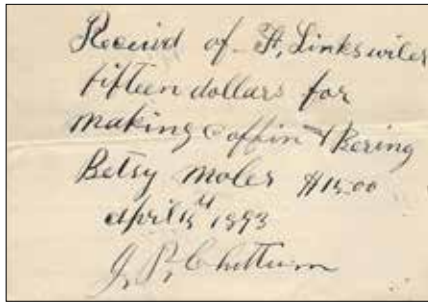 Received of H, Linkswiler
fifteen dollars for
making coffin & Bering
Betsy Moler $15.00
April 15th 1893
J, P, Chittum